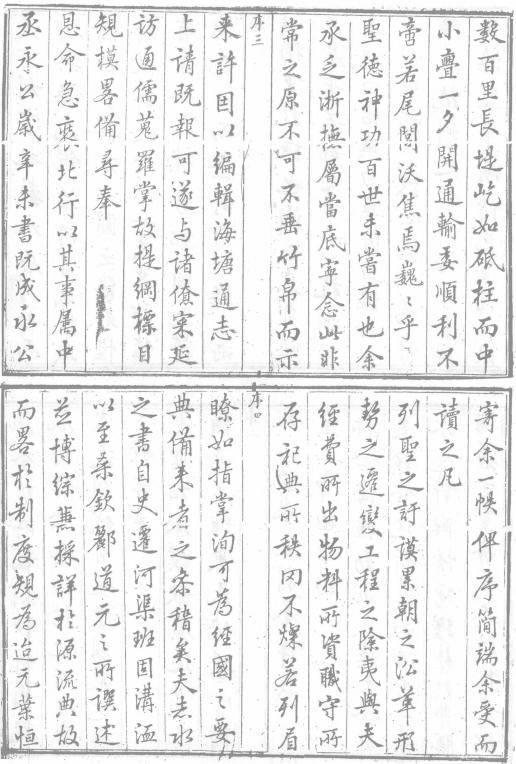 數百里長堤屹如砥柱而中
小亹一夕開通輸委順利不
啻若尾閭沃焦焉巍〻乎
聖德神功百世未嘗有也余
承乏浙撫屬當底寧念此非
常之原不可不垂竹帛而示
序三
来許因以編輯海塘通志
上請既報可遂与諸僚寀延
訪通儒蒐羅掌故提綱標目
規模畧備尋奉
恩命急裝北行以其事屬中
丞永公歲辛未書既成永公
寄余一帙俾序簡端余受而
讀之凡
列聖之訏謨累朝之沿革形
勢之遷變工程之險夷與夫
經費所出物料所資職守所
存祀典所秩罔不燦若列眉
序四
瞭如指掌洵可為經國之要
典備来者之条稽矣夫志水
之書自史遷河渠班固溝洫
以至桑欽酈道元之所譔述
並博綜兼採詳於源流典故
而畧於制度規為迨元葉恒